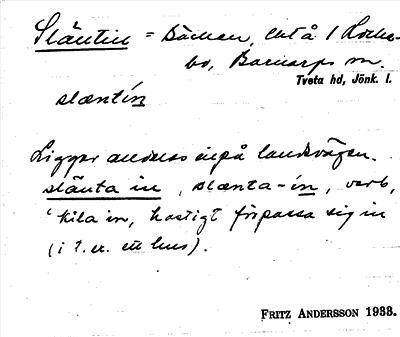 Släntin = Backen, ett å 1 Locke-
bo, Barnarps sn.
Tveta hd, Jönk. l.
slæntín
Ligger alldeles inpå landsvägen.
slänta in, slænta-ín, verb,
'kila in, hastigt förpassa sig in
(i t. ex. ett hus).
FRITZ ANDERSSON 1933.